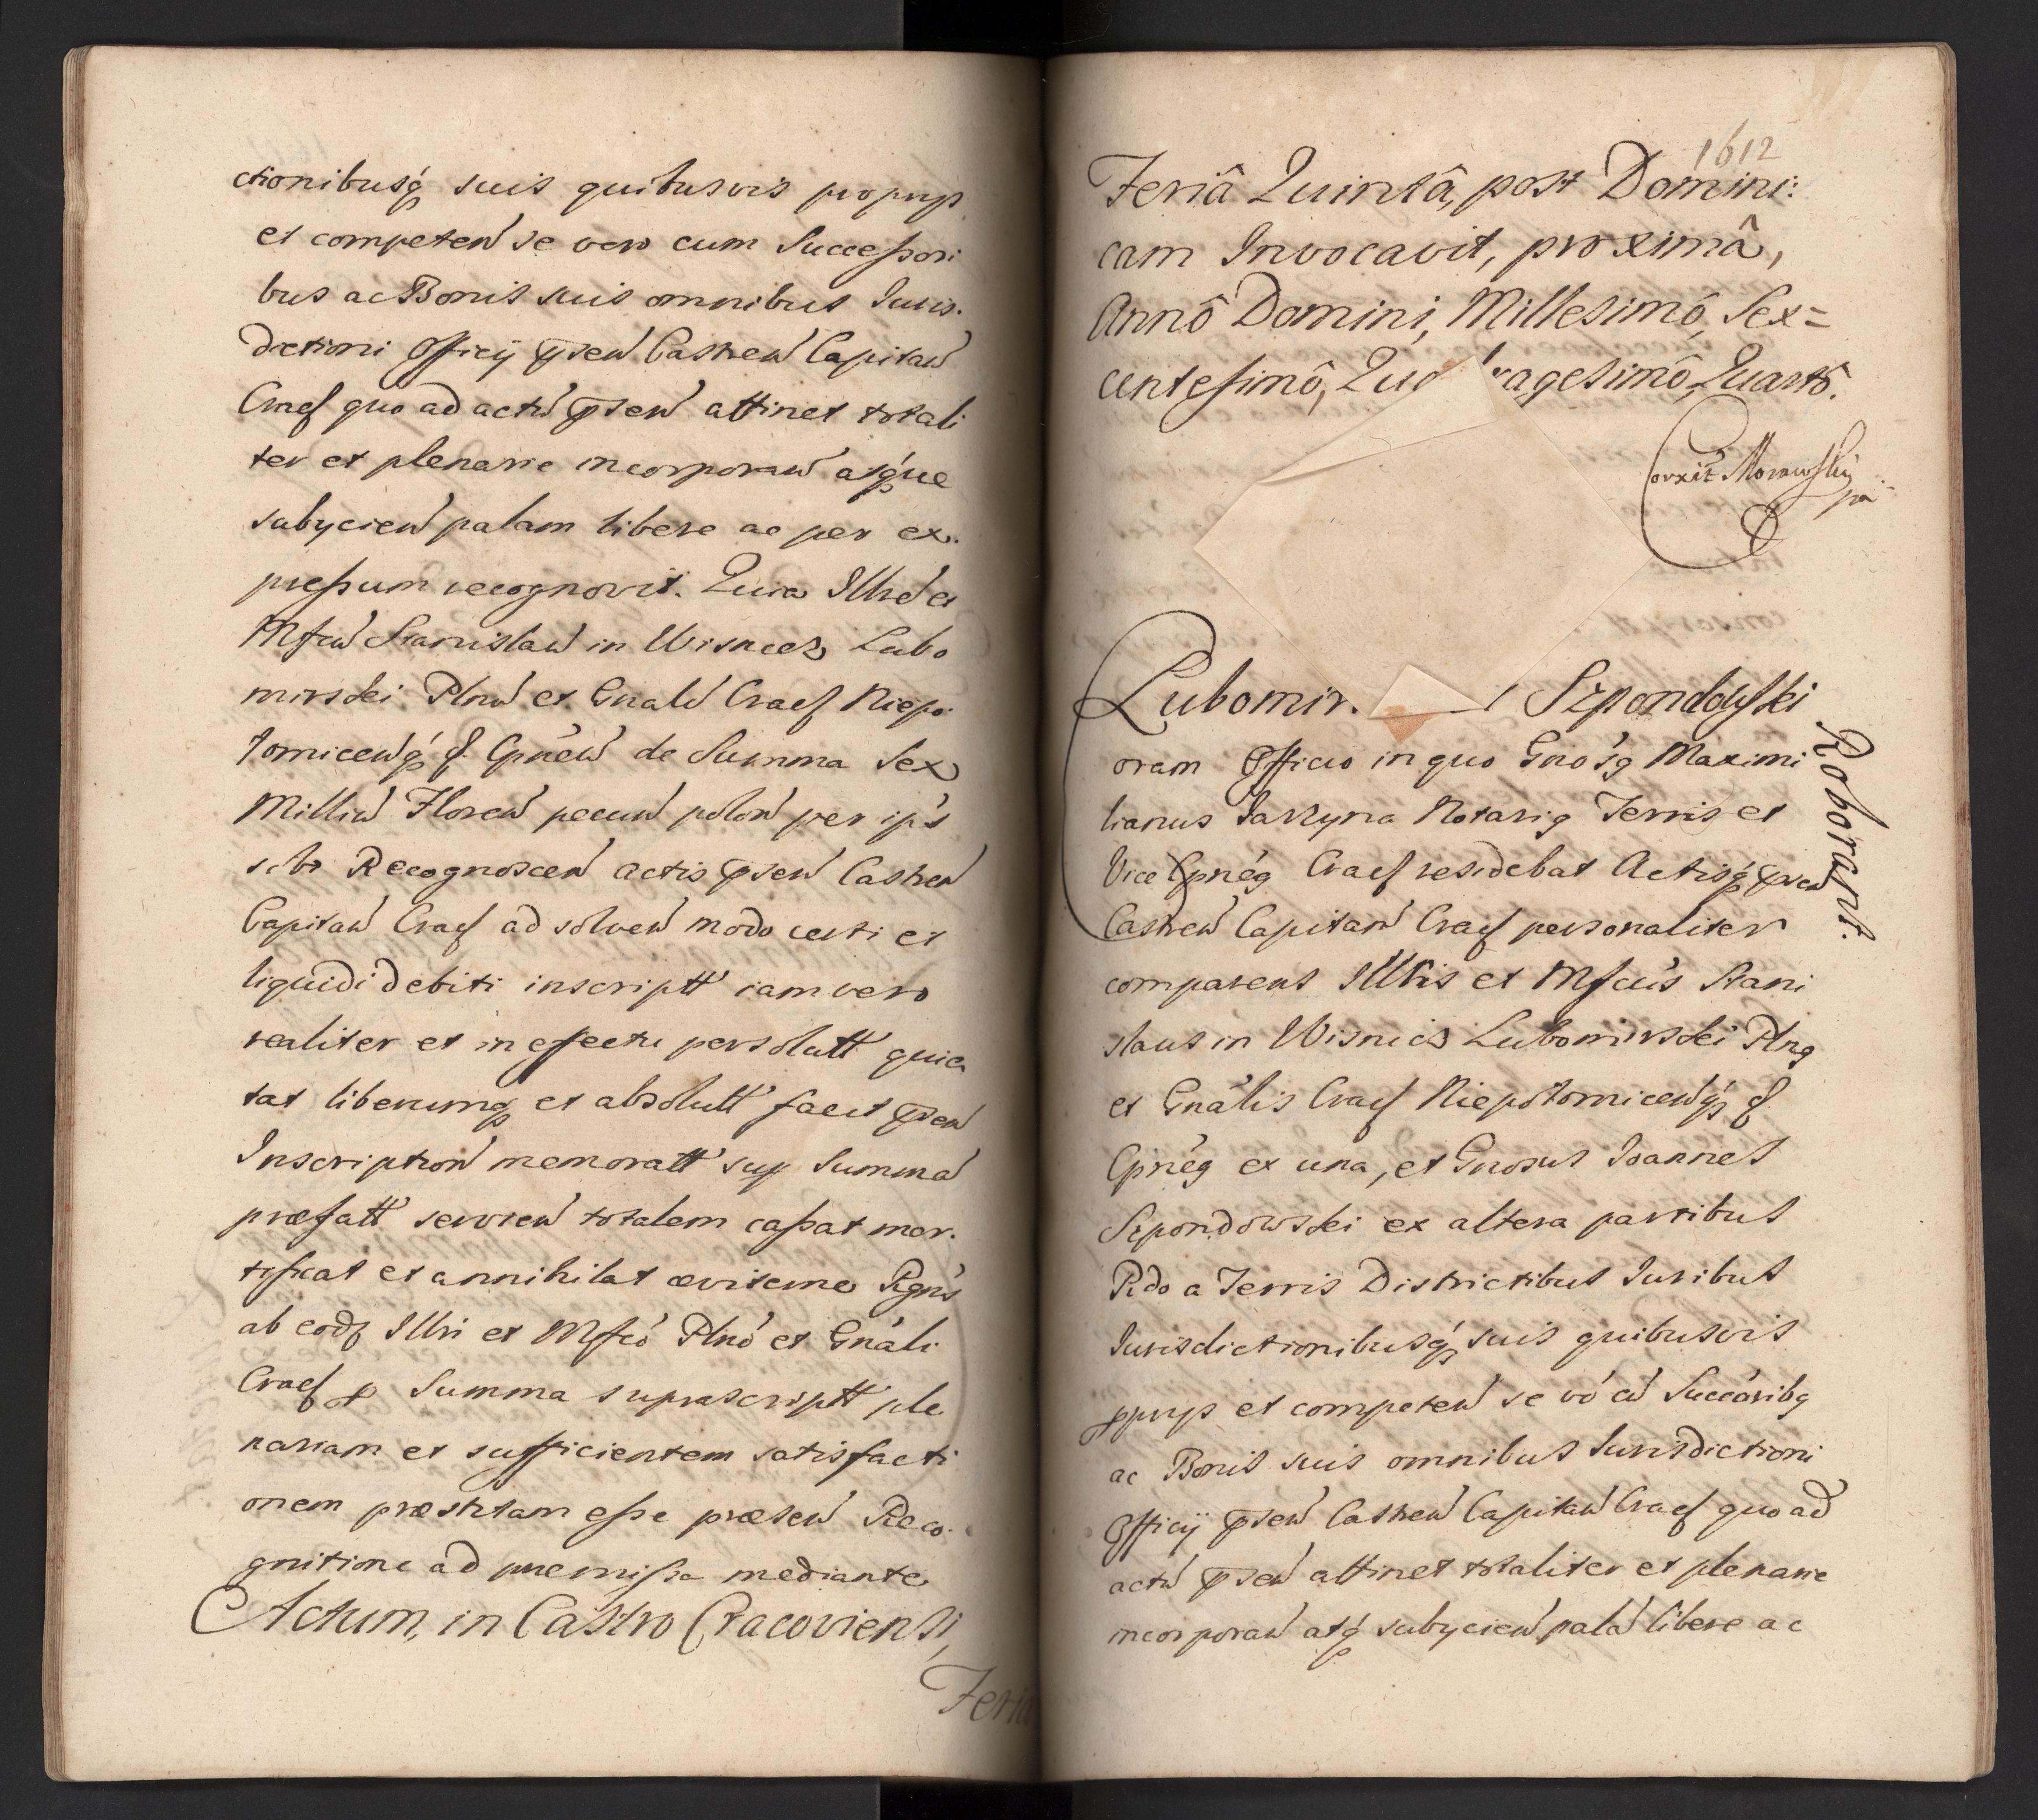 ctionibusq́ suis quibusvis proprys
et competen̄ se vero cum Successori
bus ac Bonis suis omnibus Juris.
dictioni Officij p̄sen̄ Castren̄ Capitan̄
Cracſ quo ad actū p̄sen̄ attinet totali
ter et plenarie incorporan̄ atq́ue
subycien̄ palam libere ac per ex.
pressum recognovit. Quia Illrē et
Mfcū Stanislaū in Wisnicz Lubo
mirski Pln̄ū et Gn̄alē Cracſ Niepo
lomicen̄q́ ꝭ. Cpn̄eū de Summa Sex
Milliū Floren̄ pecun̄ polon̄ per ip̄s
sibi Recognoscen̄ actis p̄sen̄ Castren̄
Capitan̄ Cracſ ad solven̄ modo certi et
liquidi debiti inscriptt̄ iam vero
realiter et in effectu persolutt̄ quie
tat liberumq́ et absolutt̄ facit p̄sen̄
Inscription̄ memoratt̄ sup Summā
præfatt̄ servien̄ totalem cassat mor.
tificat et annihilat æviterne Rgn̄s
ab eodꝫ Illri et Mfcō Pln̄ō et Gn̄ali
Cracſ p Summa suprascriptt̄ ple
nariam et sufficientem satisfacti
onem præstitam esse præsen̄ Reco.
gnitione ad præmissa mediante
Actum, in Castro Cracoviensi,
Feria
1612
Feriâ Quintâ, post Domini:
cam Invocavit, proximâ,
Annô Domini, Millesimô, Sex=
centesimô, Quadragesimô, Quartô.
Corxit Morawski
pã
Lubomir. Szpondowski
Roborant.
oram Officio in quo Gn̄oſꝯ Maximi
lianus Jarzyna Notariꝯ Terrisꝯ et
Vice Cpn̄eꝯ Cracſ residebat Actisq́ p̄sen̄
Castren̄ Capitan̄ Cracſ personaliter
comparens Illris et Mfcūs Stani
slaus in Wisnicz Lubomirski Pln̄ꝯ
et Gn̄alis Cracſ Niepolomicen̄q́ ꝭ.
Cpn̄eꝯ ex una, et Gn̄osus Joannes
Szpondowski ex altera partibus
Rc̄do a Terris Districtibus Juribus
Jurisdictionibusq́ suis quibusvis
pprys et competen̄ se vō cū Succōribꝯ
ac Bonis suis omnibus Jurisdictioni
Officij p̄sen̄ Castren̄ Capitan̄ Cracſ quo ad
actū p̄sen̄ attinet totaliter et plenarie
incorporan̄ atq́ subycien̄ palā libere ac